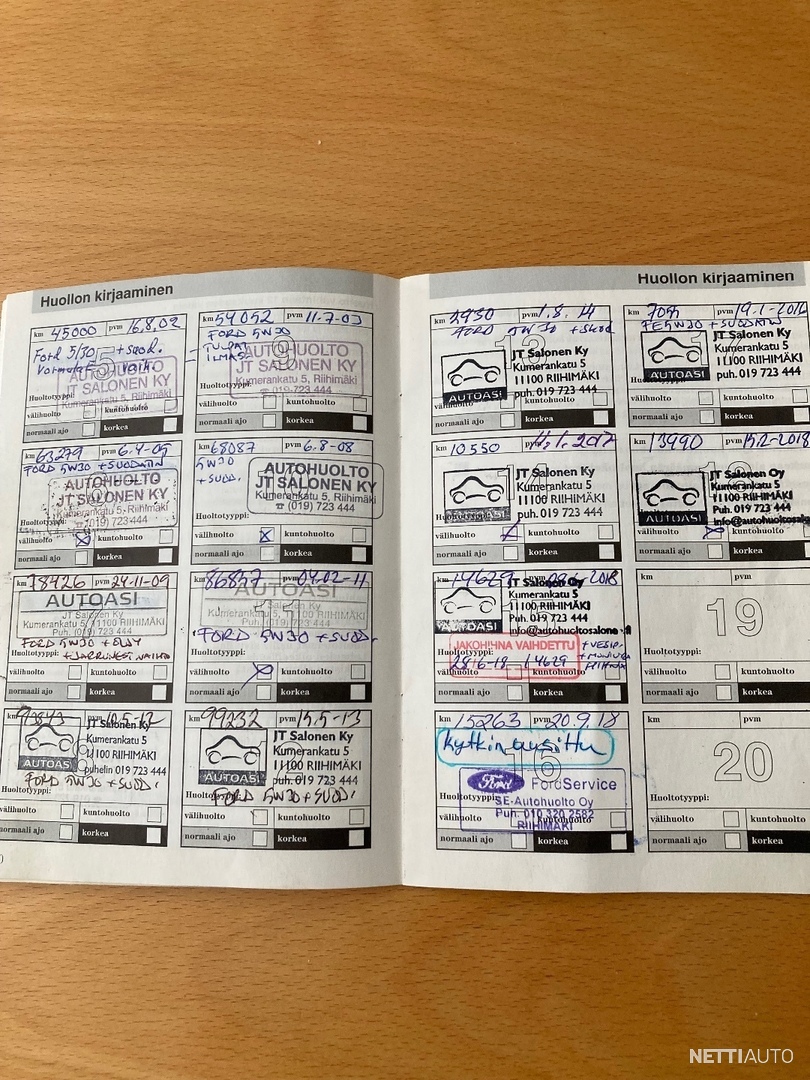 Huollon kirjaaminen
km 45000 pvm 16.8.02
Ford 5/30 + suod.
AUTOHUOLTO
JT SALONEN KY
Kumerankatu 5, Riihimäki
Huoltotyyppi:
välihuolto kuntohuolto
normaali ajo korkea
km 54052 pvm 11-7-03
FORD 5W30
TULPAT
ILMAS.
AUTOHUOLTO
JT SALONEN KY
Kumerankatu 5, Riihimäki
☎ (019) 723 444
Huoltotyyppi:
välihuolto kuntohuolto
normaali ajo korkea
km 63279 pvm 6-4-05
FORD 5W30 + SUODATIN
AUTOHUOLTO
JT SALONEN KY
Kumerankatu 5, Riihimäki
☎ (019) 723 444
Huoltotyyppi:
välihuolto kuntohuolto
normaali ajo korkea
km 68087 pvm 6-8-08
5W30
+ SUOD.
AUTOHUOLTO
JT SALONEN KY
Kumerankatu 5, Riihimäki
☎ (019) 723 444
Huoltotyyppi:
välihuolto kuntohuolto
normaali ajo korkea
km 78426 pvm 24-11-09
AUTOASI
JT Salonen Ky
Kumerankatu 5
11100 RIIHIMÄKI
Puh. (019) 723 444
FORD 5W30 +
Huoltotyyppi:
+ JARRUNESTE VAIHTO
välihuolto kuntohuolto
normaali ajo korkea
km 86857 pvm 04.02-11
AUTOASI
JT Salonen Ky
Kumerankatu 5
11100 RIIHIMÄKI
Puh. (019) 723 444
FORD 5W30 + SUOD.
Huoltotyyppi:
välihuolto kuntohuolto
normaali ajo korkea
km 93843 10.5-12
AUTOASI
JT Salonen Ky
Kumerankatu 5
11100 RIIHIMÄKI
puhelin 019 723 444
FORD 5W30 + SUOD.
välihuolto kuntohuolto
normaali ajo korkea
km 99232 15.5-13
AUTOASI
JT Salonen Ky
Kumerankatu 5
11100 RIIHIMÄKI
puh. 019 723 444
FORD 5W30 + SUOD.
Huoltotyyppi:
välihuolto kuntohuolto
normaali ajo korkea
Huollon kirjaaminen
km 3930 pvm 1.8.14
FORD 5W30 + suod
13
AUTOASI
JT Salonen Ky
Kumerankatu 5
11100 RIIHIMÄKI
puh. 019 723 444
Huoltotyyppi:
välihuolto kuntohuolto
normaali ajo korkea
km pvm 19.1-2016
5W30 + SUODATIN
AUTOASI
JT Salonen Ky
Kumerankatu 5
11100 RIIHIMÄKI
puh. 019 723 444
Huoltotyyppi:
välihuolto kuntohuolto
normaali ajo korkea
km 10550 2017
AUTOASI
JT Salonen Ky
Kumerankatu 5
11100 RIIHIMÄKI
puh. 019 723 444
Huoltotyyppi:
välihuolto kuntohuolto
normaali ajo korkea
km 13490 pvm 15.2-2018
AUTOASI
JT Salonen Oy
Kumerankatu 5
11100 RIIHIMÄKI
puh. 019 723 444
Huoltotyyppi:
välihuolto kuntohuolto
normaali ajo korkea
km 14629 2018
AUTOASI
JT Salonen Oy
Kumerankatu 5
11100 RIIHIMÄKI
puh. 019 723 444
JAKOHIHNA VAIHDETTU
28.6-18 14629
+ VESIP.
+ MONIURA
HIHNA
Huoltotyyppi:
välihuolto kuntohuolto
normaali ajo korkea
km pvm
19
Huoltotyyppi:
välihuolto kuntohuolto
normaali ajo korkea
km 15263 pvm 20.9.18
Kytkin uusittu
16
Ford FordService
SE-Autohuolto Oy
Puh. 010 320 2582
RIIHIMÄKI
Huoltotyyppi:
välihuolto kuntohuolto
normaali ajo korkea
km pvm
20
Huoltotyyppi:
välihuolto kuntohuolto
normaali ajo korkea
NETTIAUTO